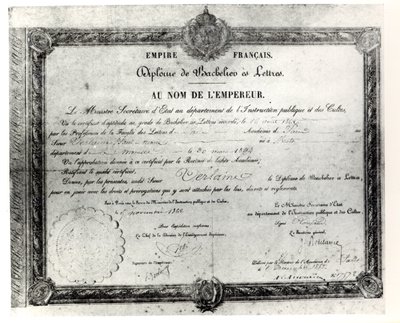 EMPIRE FRANÇAIS.
Diplôme de Bachelier ès Lettres.
AU NOM DE L'EMPEREUR.
Le Ministre Secrétaire d'Etat au département de l'Instruction publique et des Cultes,
Vu le certificat d'aptitude au grade de Bachelier ès Lettres accordé, le 16 août 1862
par les Professeurs de la Faculté des Lettres de Paris Académie de Paris
au Sieur Verlaine Paul Marie né à Metz
département de la Moselle le 30 mars 1844
Vu l'approbation donnée à ce certificat par le Recteur de ladite Académie;
Ratifiant le susdit certificat,
Donne, par les présentes, audit Sieur Verlaine le Diplôme de Bachelier ès Lettres,
pour en jouir avec les droits et prérogatives qui y sont attachés par les lois, décrets et règlements.
novembre 1862
Pour expédition conforme
Le Chef de la Division de l'Enseignement Supérieur,
Le Ministre Secrétaire d'Etat
au département de l'Instruction publique et des Cultes,
Signé
Le Secrétaire général,
Signature de l'impétrant
Délivré par le Recteur de l'Académie de Paris